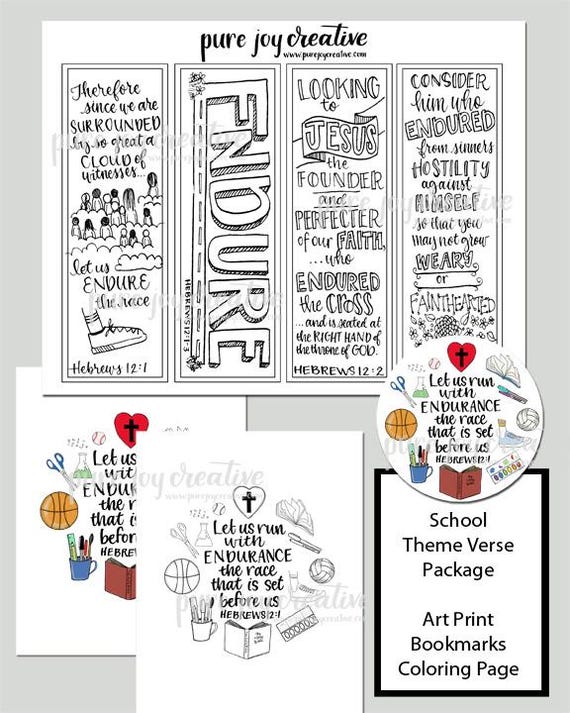 pure joy creative
www.purejoycreative.com
Therefore
since we are
SURROUNDED
by so great a
CLOUD of
witnesses...
let us
ENDURE
the race
Hebrews 12:1
ENDURE
HEBREWS 12:1-3
LOOKING
to
JESUS
the
FOUNDER
and
PERFECTER
of our FAITH,
...who
ENDURED
the CROSS
...and is seated at
the RIGHT HAND of
the throne of GOD.
HEBREWS 12:2
CONSIDER
him who
ENDURED
from sinners
HOSTILITY
against
HIMSELF
so that you
may not grow
WEARY
or
FAINTHEARTED
pure joy creative
www.purejoycreative.com
Let us run
with
ENDURANCE
the race
that is set
before us
HEBREWS 12:1
pure joy creative
www.purejoycreative.com
Let us
with
ENDU
the r
that is
before
HEBREWS
Let us run
with
ENDURANCE
the race
that is set
before us
HEBREWS 12:1
pure joy creative
www.purejoycreative.com
School
Theme Verse
Package
Art Print
Bookmarks
Coloring Page